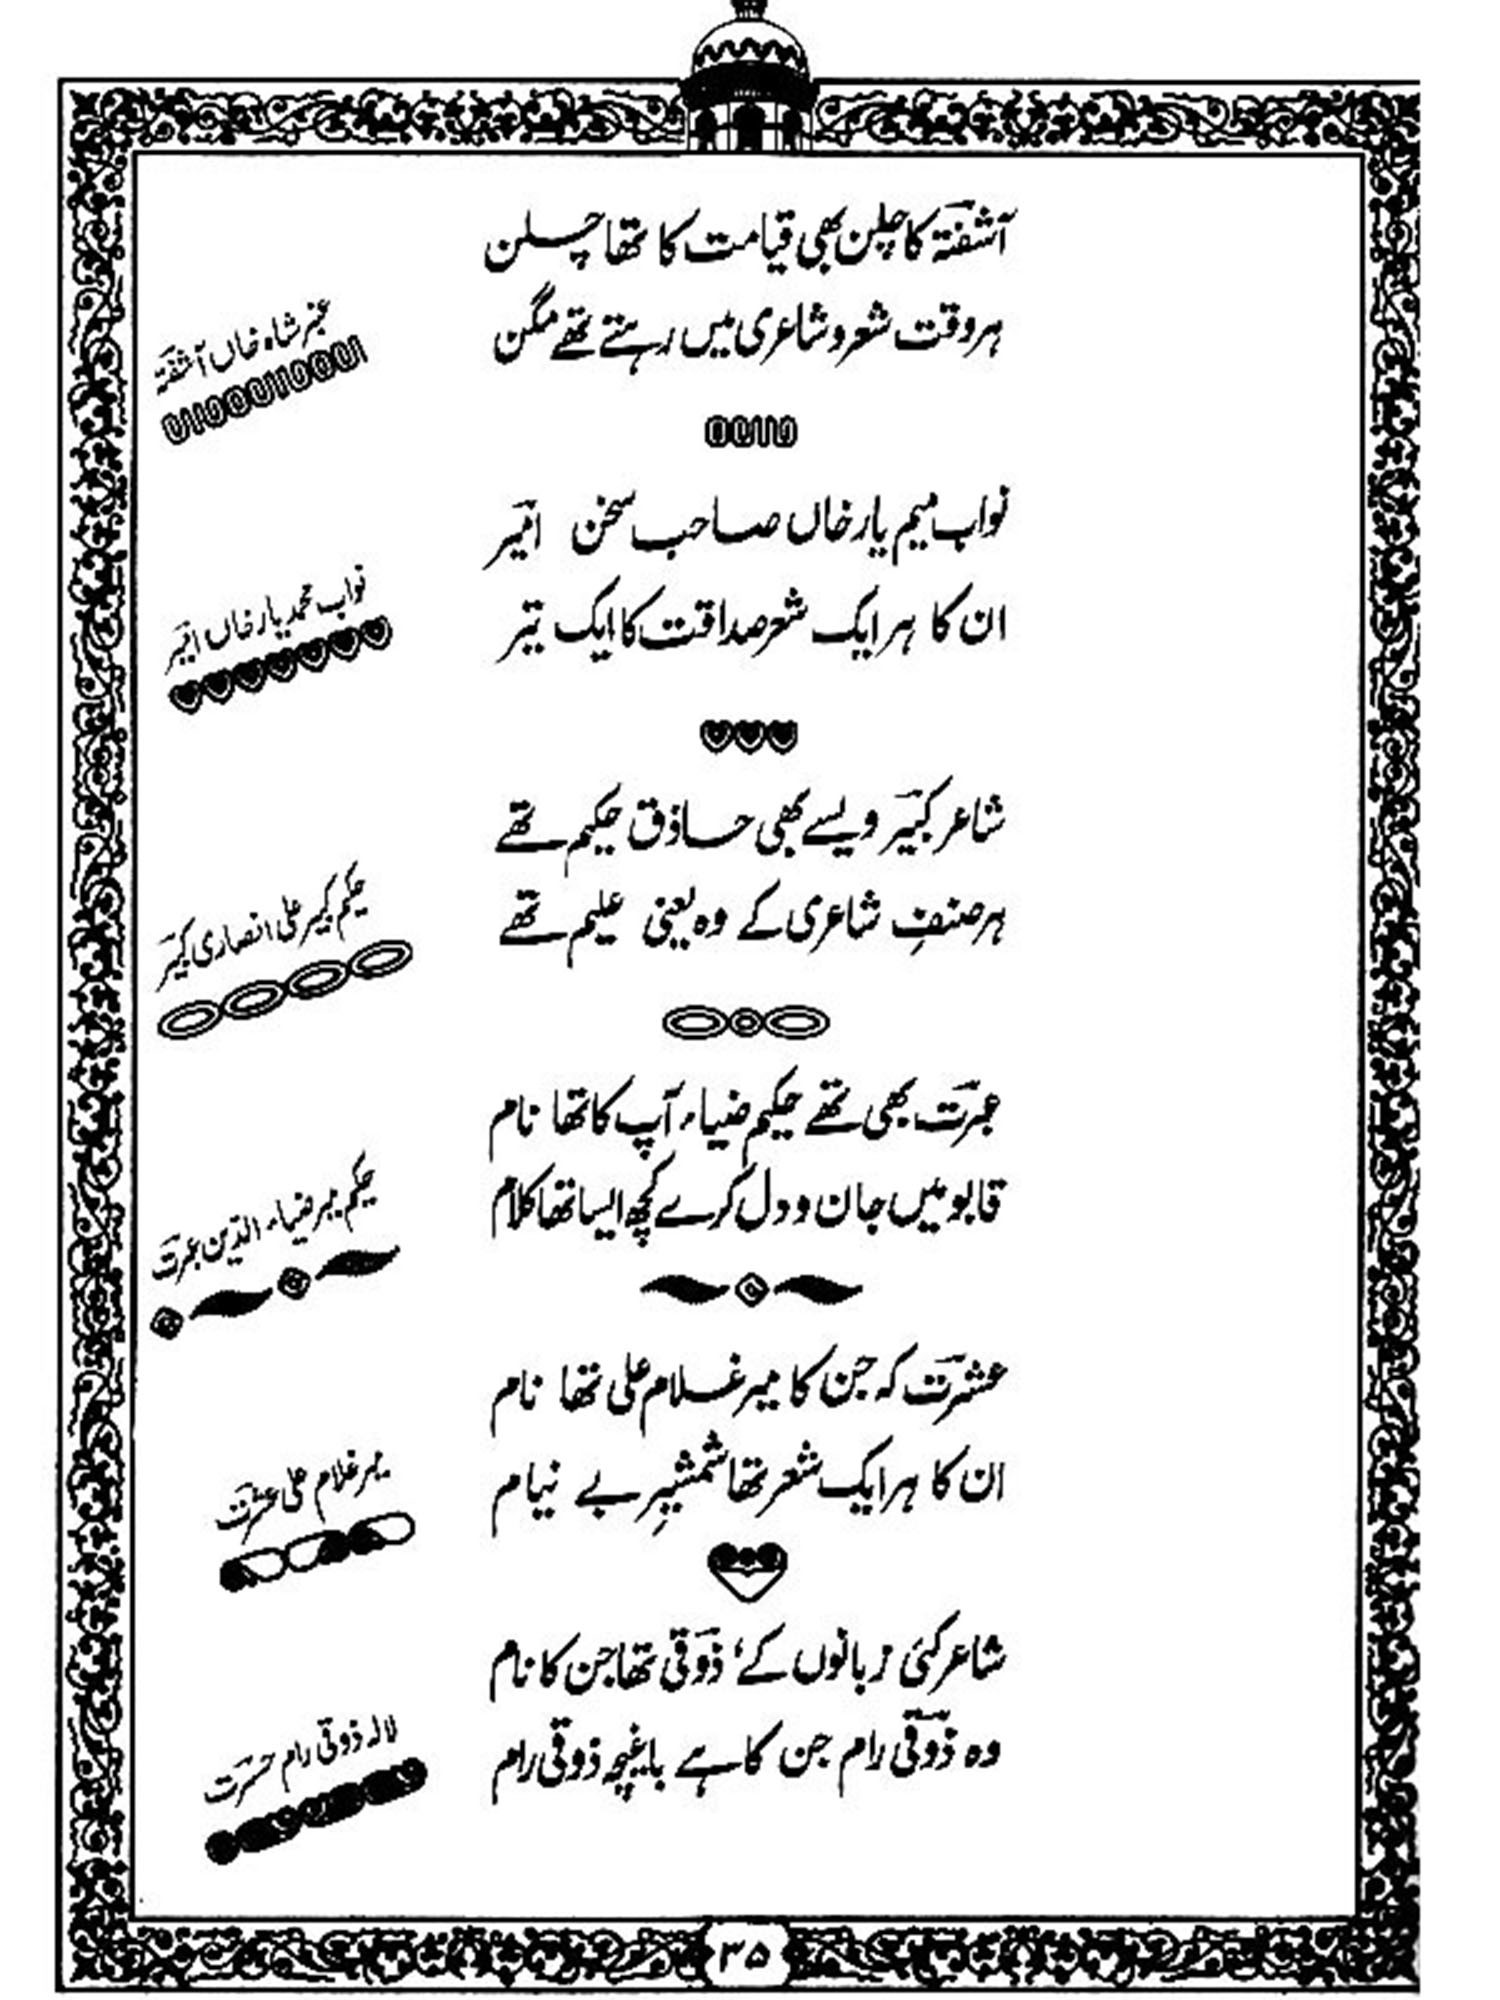 آشفتہؔ کا چلن بھی قیامت کا تھا چلن
ہر وقت شعر و شاعری میں رہتے تھے مگن
عنبر شاہ خاں آشفتہؔ
نواب میم یار خاں صاحب سخن امیرؔ
ان کا ہر ایک شعر صداقت کا ایک تیر
نواب محمد یار خاں امیرؔ
شاعر کبیرؔ ویسے بھی حاذق حکیم تھے
ہر صنفِ شاعری کے وہ یعنی علیم تھے
حکیم کبیر علی انصاری کبیرؔ
عبرتؔ بھی تھے حکیم ضیاء آپ کا تھا نام
قابو میں جان و دل کرے کچھ ایسا تھا کلام
حکیم میر ضیاء الدین عبرتؔ
عشرتؔ کہ جن کا میر غلام علی تھا نام
ان کا ہر ایک شعر تھا شمشیرِ بے نیام
میر غلام علی عشرتؔ
شاعر کئی زبانوں کے، ذوقیؔ تھا جن کا نام
وہ ذوقیؔ رام جن کا ہے باغیچہ ذوقی رام
لالہ ذوقی رام حسرتؔ
۳۵